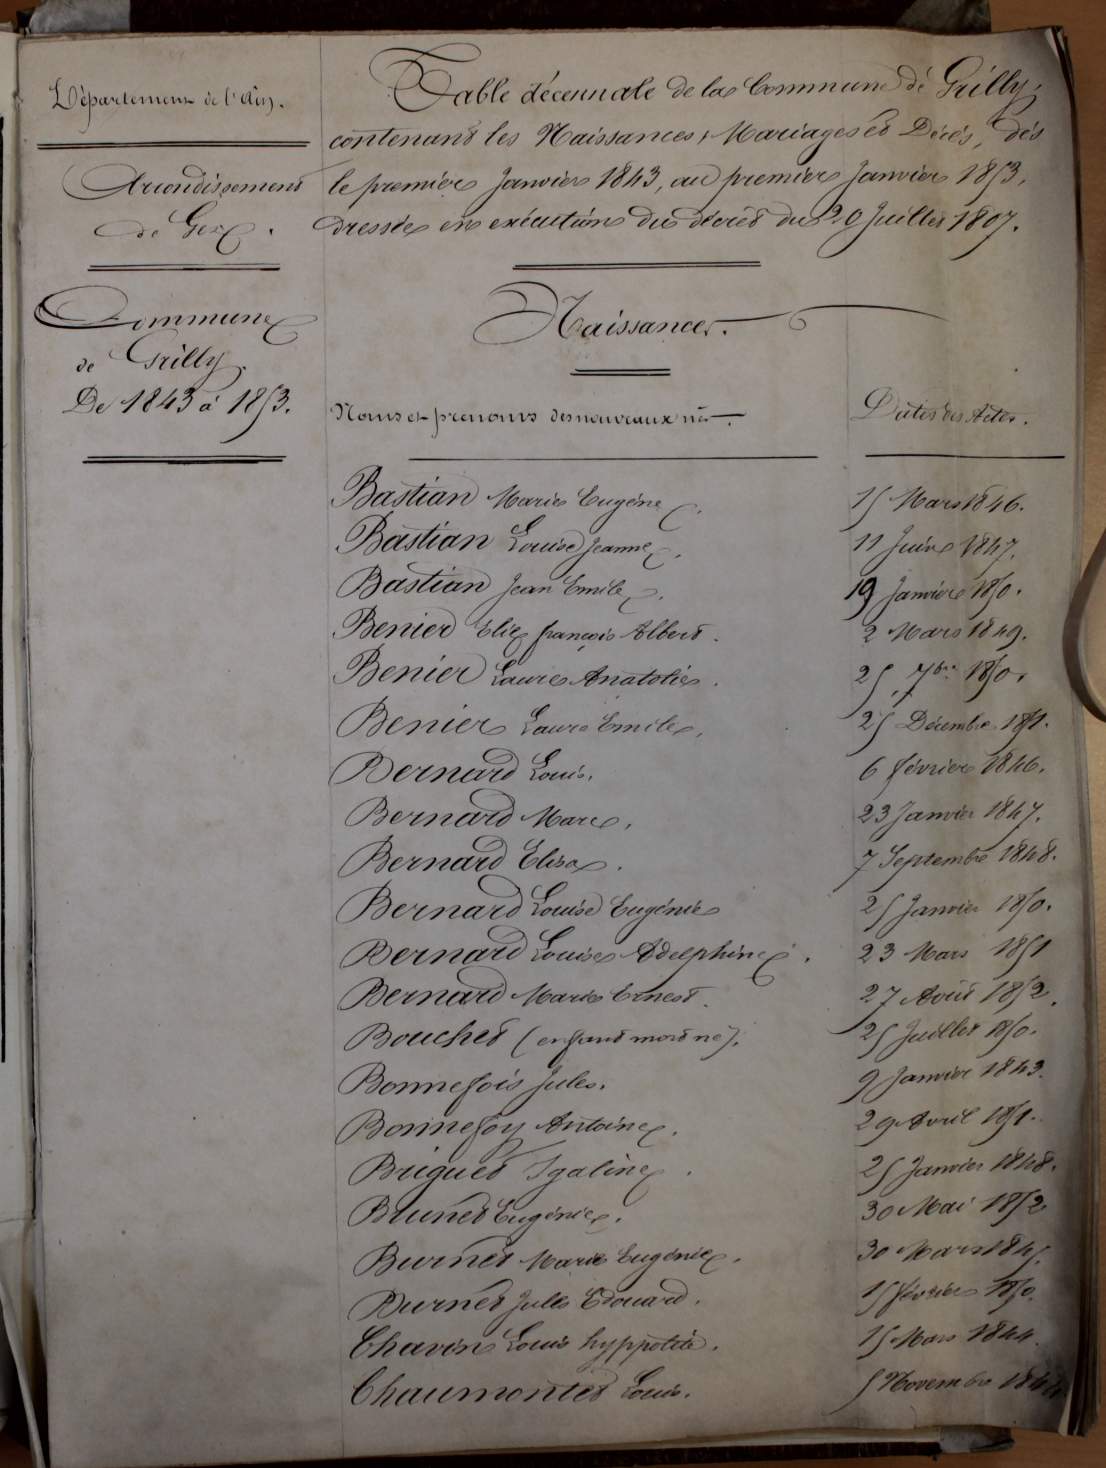 Département de l'Ain.
Arrondissement
de Gex.
Commune
de Grilly.
De 1843 à 1853.
Table décennale de la Commune de Grilly,
contenant les Naissances, Mariages et Décès, dès
le premier Janvier 1843, au premier Janvier 1853,
dressée en exécution du décret du 20 Juillet 1807.
Naissances.
Noms et prenoms des nouveaux nés. Dates des Actes.
Bastian Marie Eugène. 15 Mars 1846.
Bastian Louise Jeanne. 11 Juin 1847.
Bastian Jean Emile. 19 Janvier 1850.
Benier Elie françois Albert. 2 Mars 1849.
Benier Laure Anatolie. 25 7bre 1850.
Benier Laure Emilie. 25 Décembre 1851.
Bernard Louis. 6 février 1846.
Bernard Marc. 23 Janvier 1847.
Bernard Elisa. 7 Septembre 1848.
Bernard Louise Eugénie 25 Janvier 1850.
Bernard Louise Adelphine. 23 Mars 1851
Bernard Marie Ernest. 27 Août 1852.
Bouchet (enfant mort né). 25 Juillet 1850.
Bonnefois Jules. 9 Janvier 1843.
Bonnefoy Antoine. 29 Avril 1851.
Briguet Igaline. 25 Janvier 1848.
Brunet Eugénie. 30 Mai 1852
Burnet Marie Eugénie. 30 Mars 1845.
Burnet Jules Edouard. 15 février 1850.
Chavin Louis hyppolite. 15 Mars 1844.
Chaumontet Louis. 5 Novembre